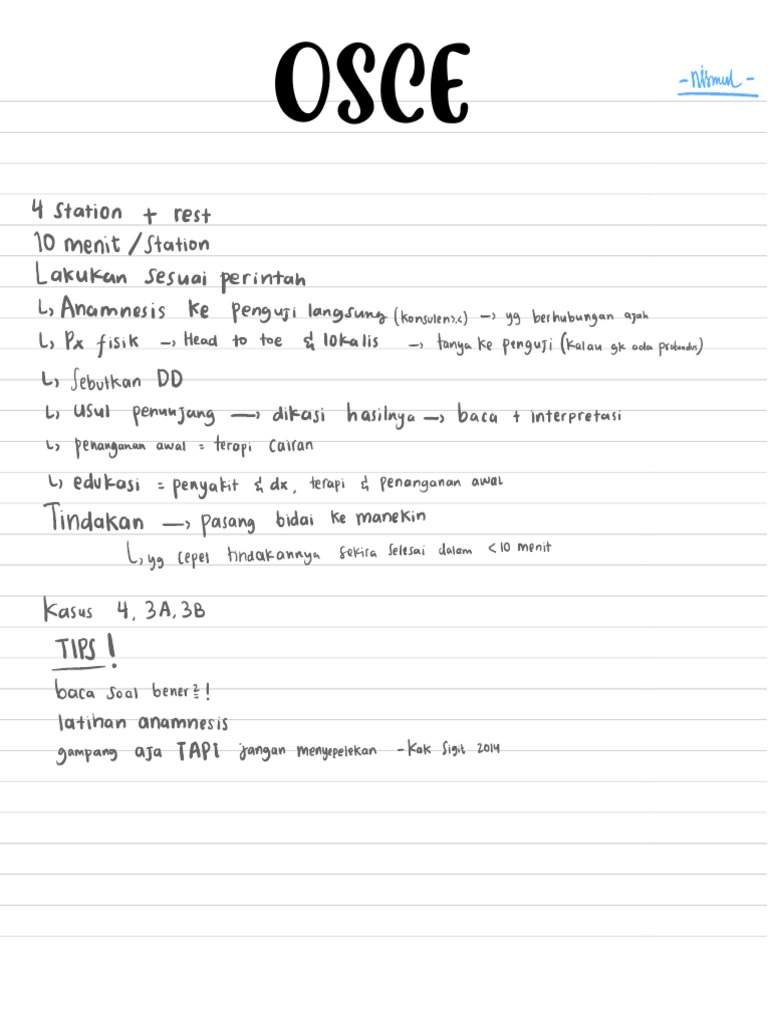 OSCE
- Nismul -
4 Station + rest
10 menit / Station
Lakukan sesuai perintah
↳ Anamnesis ke penguji langsung (konsulen) → yg berhubungan ajah
↳ Px fisik → Head to toe & lokalis → tanya ke penguji (kalau gk ada probandus)
↳ Sebutkan DD
↳ usul penunjang → dikasi hasilnya → baca + interpretasi
↳ penanganan awal = terapi cairan
↳ edukasi = penyakit & dx, terapi & penanganan awal
Tindakan → pasang bidai ke manekin
↳ yg cepet tindakannya sekira selesai dalam < 10 menit
Kasus 4, 3A, 3B
TIPS !
baca soal bener2 !
latihan anamnesis
gampang aja TAPI jangan menyepelekan - Kak Sigit 2014